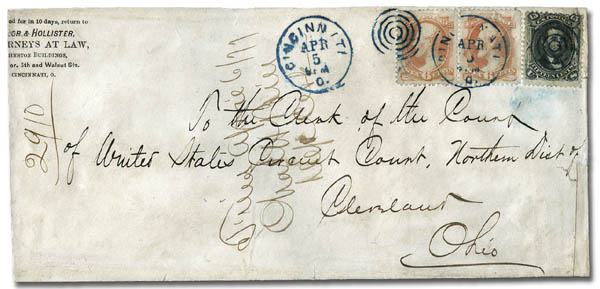 ed for in 10 days, return to
OR & HOLLISTER,
RNEYS AT LAW,
Buildings,
or. 5th and Walnut Sts.
CINCINNATI, O.
CINCINNATI
APR
5
O.
CINCINNATI
APR
5
O.
2910
To the Clerk of the Court
of United States Circuit Court, Northern Dist of
Cleveland
Ohio